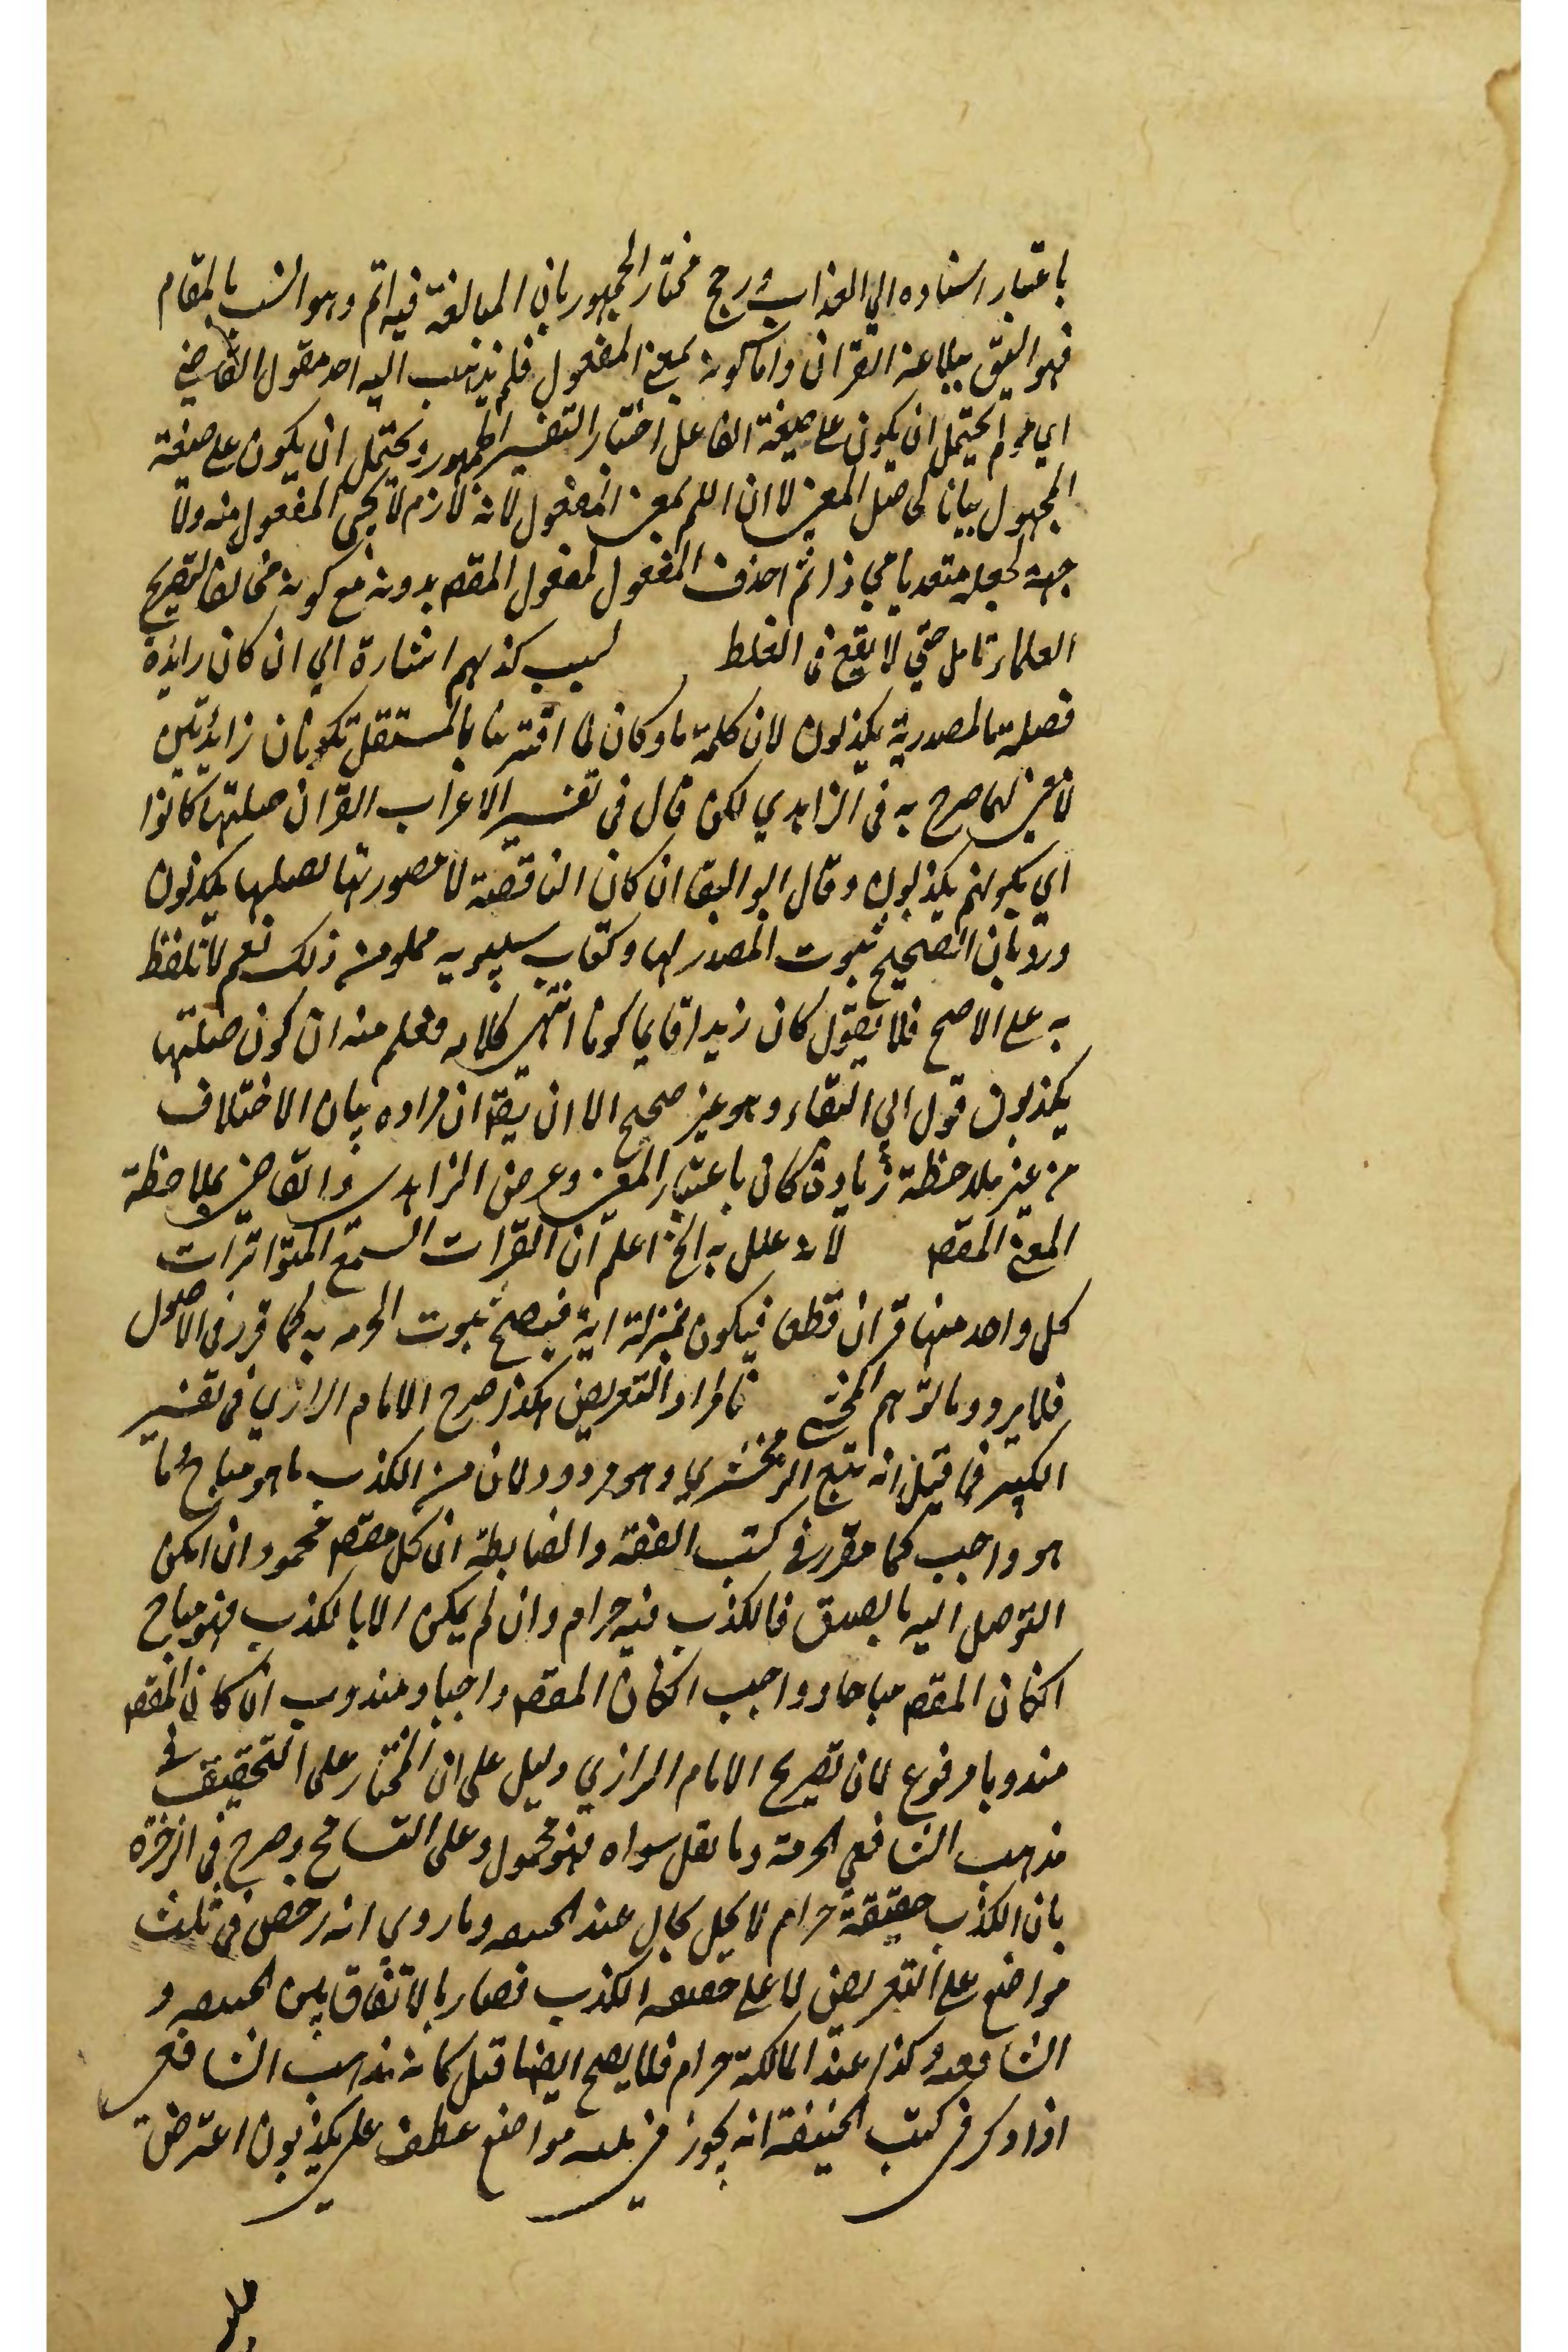 باعتبار اسناده الي العذاب ورجح مختار الجمهور بان المبالغة فيه اتم وهو انسب بالمقام
فهو اليق ببلاغة القران واما كونه بمعني المفعول فلم يذهب اليه احد فقول القاضي
اي مولم يحتمل ان يكون علي صيغة الفاعل اختيار التفسير الجمهور ويحتمل ان يكون علي صيغة
المجهول بيانا لحاصل المعني لا ان اليم بمعني المفعول لانه لازم لا يجي المفعول منه ولا
جهة لجعله متعديا مجازا ثم احذف المفعول لمفعول المقصد بدونه مع كونه مخالفا لتصريح
العلماء تامل حتي لا يقع في الغلط بسبب كذبهم اشارة الي ان كان زايدة
فصلة ما المصدرية يكذبون لان كلمة ما وكان لما اقترنتا بالمستقل تكونان زائدتين
لا معني لهما صرح به في الزاهدي لكن قال في تفسير الاعراب القران صلتها كانوا
اي بكونهم يكذبون وقال ابو البقا ان كان الناقصة لا مصدر لها فصلتها يكذبون
ورد بان الصحيح ثبوت المصدر لها وكتاب سيبويه مملو من ذلك نعم لا تلفظ
به علي الاصح فلا يقول كان زيد قايما كونا انتهي كلامه فعلم منه ان كون صلتها
يكذبون قول ابي البقاء وهو غير صحيح الا ان يقة ان مراده بيان الاختلاف
من غير ملاحظة زيادة كان باعتبار المعني وغرض الزاهدي والقاضي بملاحظة
المعني المقصد لانه علل به الخ اعلم ان القرات السبع المتواترات
كل واحد منها قران قطعا فيكون بمنزلة اية فيصح ثبوت الحرمه به كما قرر في الاصول
فلا يرد وما توهم المحشي فالمراد التعريض هكذا صرح الامام الرازي في تفسير
الكبير فما قيل انه تبع الزمخشري وهو مردود لان من الكذب ما هو مباح وما
هو واجب كما مقرر في كتب الفقه والضابطة ان كل مقصد محمود ان امكن
التوصل اليه بالصدق فالكذب فيه حرام وان لم يمكن الا بالكذب فهو مباح
انكان المقصد مباحا وواجب انكان المقصد واجبا ومندوب ان كان المقصد
مندوبا مرفوع لان تصريح الامام الرازي دليل علي ان المختار علي التحقيق في
مذهب الشافعي الحرمة وما نقل سواه فهو محمول وعلي التسامح وصرح في الذخرة
بان الكذب حقيقة حرام لا يحل بحال عند الحنيفه وما روي انه رخص في ثلث
مواضع علي التعريض لا علي حقيقه الكذب فصار بالاتفاق بين الحنيفه و
الشافعيه وكذا عند المالكة حرام فلا يصح ايضا قيل كانه مذهب الشافعي
اذا ذكر في كتب الحنيفة انه يجوز في ثلثه مواضع عطف علي يكذبون اعترض